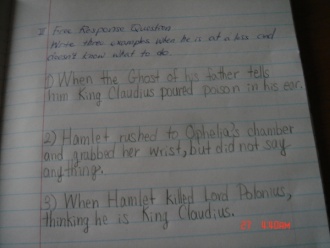 II Free Response Question
Write three examples when he is at a loss and
doesn't know what to do.
1) When the Ghost of his father tells
him King Claudius poured poison in his ear.
2) Hamlet rushed to Ophelia's chamber
and grabbed her wrist, but did not say
anythings.
3) When Hamlet killed Lord Polonius,
thinking he is King Claudius.